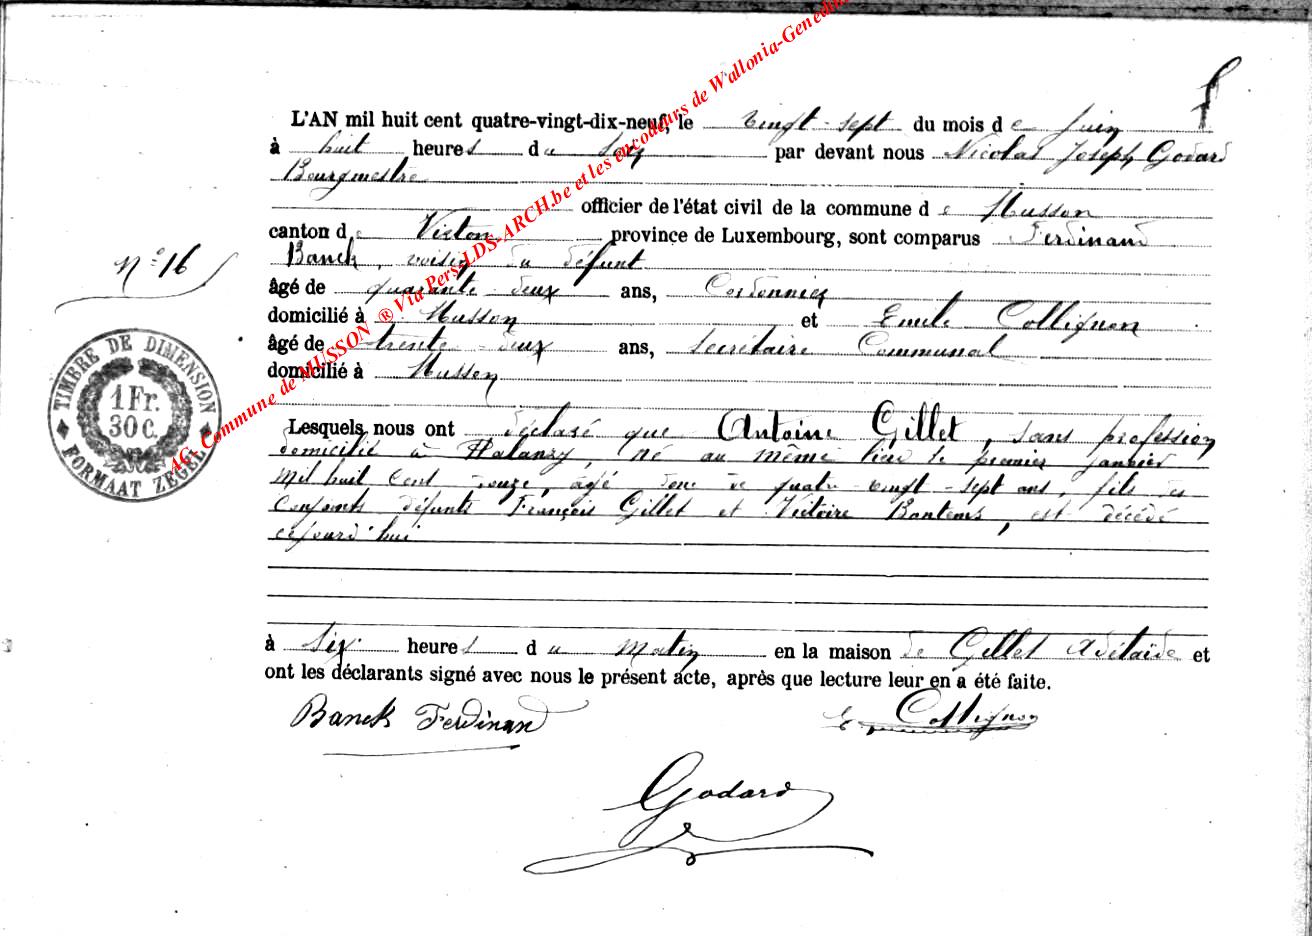 L'AN mil huit cent quatre-vingt-dix-neuf, le vingt-sept du mois de Juin
à huit heures du soir par devant nous Nicolas Joseph Godard
Bourgmestre
officier de l'état civil de la commune de Musson
canton de Virton province de Luxembourg, sont comparus Ferdinand
Banck, voisin du défunt
âgé de quarante-deux ans, Cordonnier
domicilié à Musson et Emile Collignon
âgé de trente-deux ans, Secrétaire Communal
domicilié à Musson
Lesquels nous ont déclaré que Antoine Gillet, sans profession
domicilié à Halanzy, né au même lieu le premier Janvier
mil huit cent douze, âgé donc de quatre-vingt-sept ans, fils des
conjoints défunts François Gillet et Victoire Bontems, est décédé
cejourd'hui
à six heures du matin en la maison de Gillet Adélaïde et
ont les déclarants signé avec nous le présent acte, après que lecture leur en a été faite.
Banck Ferdinand E. Collignon
Godard
N° 16
TIMBRE DE DIMENSION
1 Fr.
30 C.
FORMAAT ZEGEL
AG. Commune de MUSSON ® Via Pers.LDS-ARCH.be et les encodeurs de Wallonia-Genedin